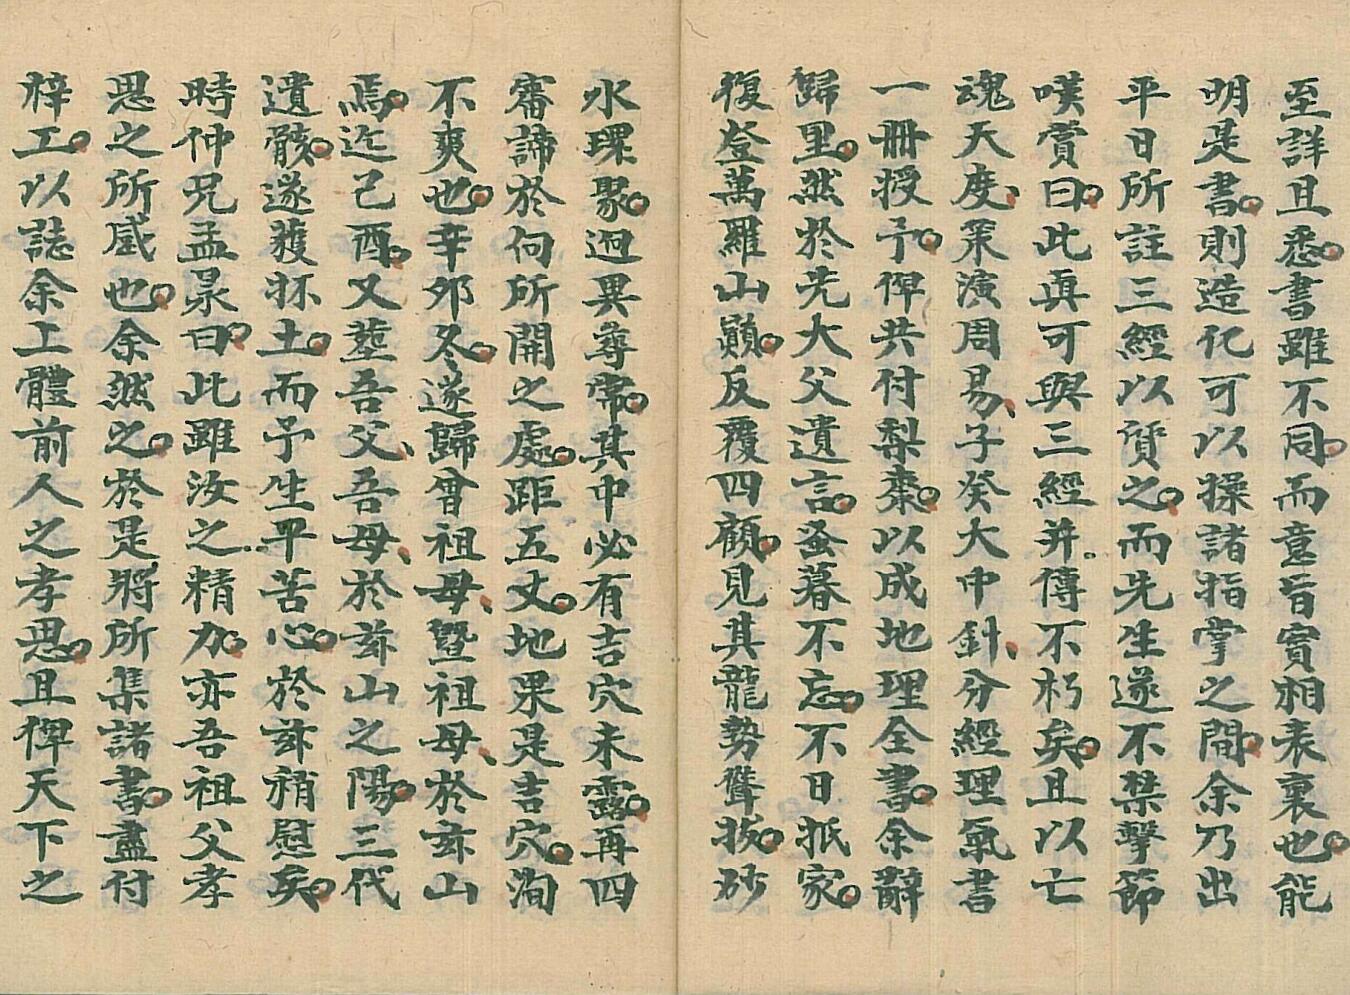 至詳且悉。書雖不同。而意旨實相表裏也。能
明是書。則造化可以操諸指掌之間。余乃出
平日所註三經以質之。而先生遂不禁擊節
嘆賞曰。此眞可與三經并傳不朽矣。且以亡
魂天度、策演周易、子癸大中針、分經理氣書
一冊授予。俾共付梨棗。以成地理全書。余辭
歸里。然於先大父遺言。蚤暮不忘。不日抵家。
復登萬羅山顚。反覆四顧。見其龍勢聳拔。砂
水環聚。迥異尋常。其中必有吉穴未露。再四
審諦於何所開之處。距五丈。地果是吉穴。洵
不爽也。辛卯冬。遂歸曾祖母、暨祖母、於茲山
焉。迄己酉。又塟吾父、吾母、於茲山之陽。三代
遺骸。遂獲抔土。而予生平苦心。於茲稍慰矣。
時仲兄孟晟曰。此雖汝之精力。亦吾祖父孝
思之所感也。余然之。於是將所集諸書。盡付
梓工。以誌余上體前人之孝思。且俾天下之